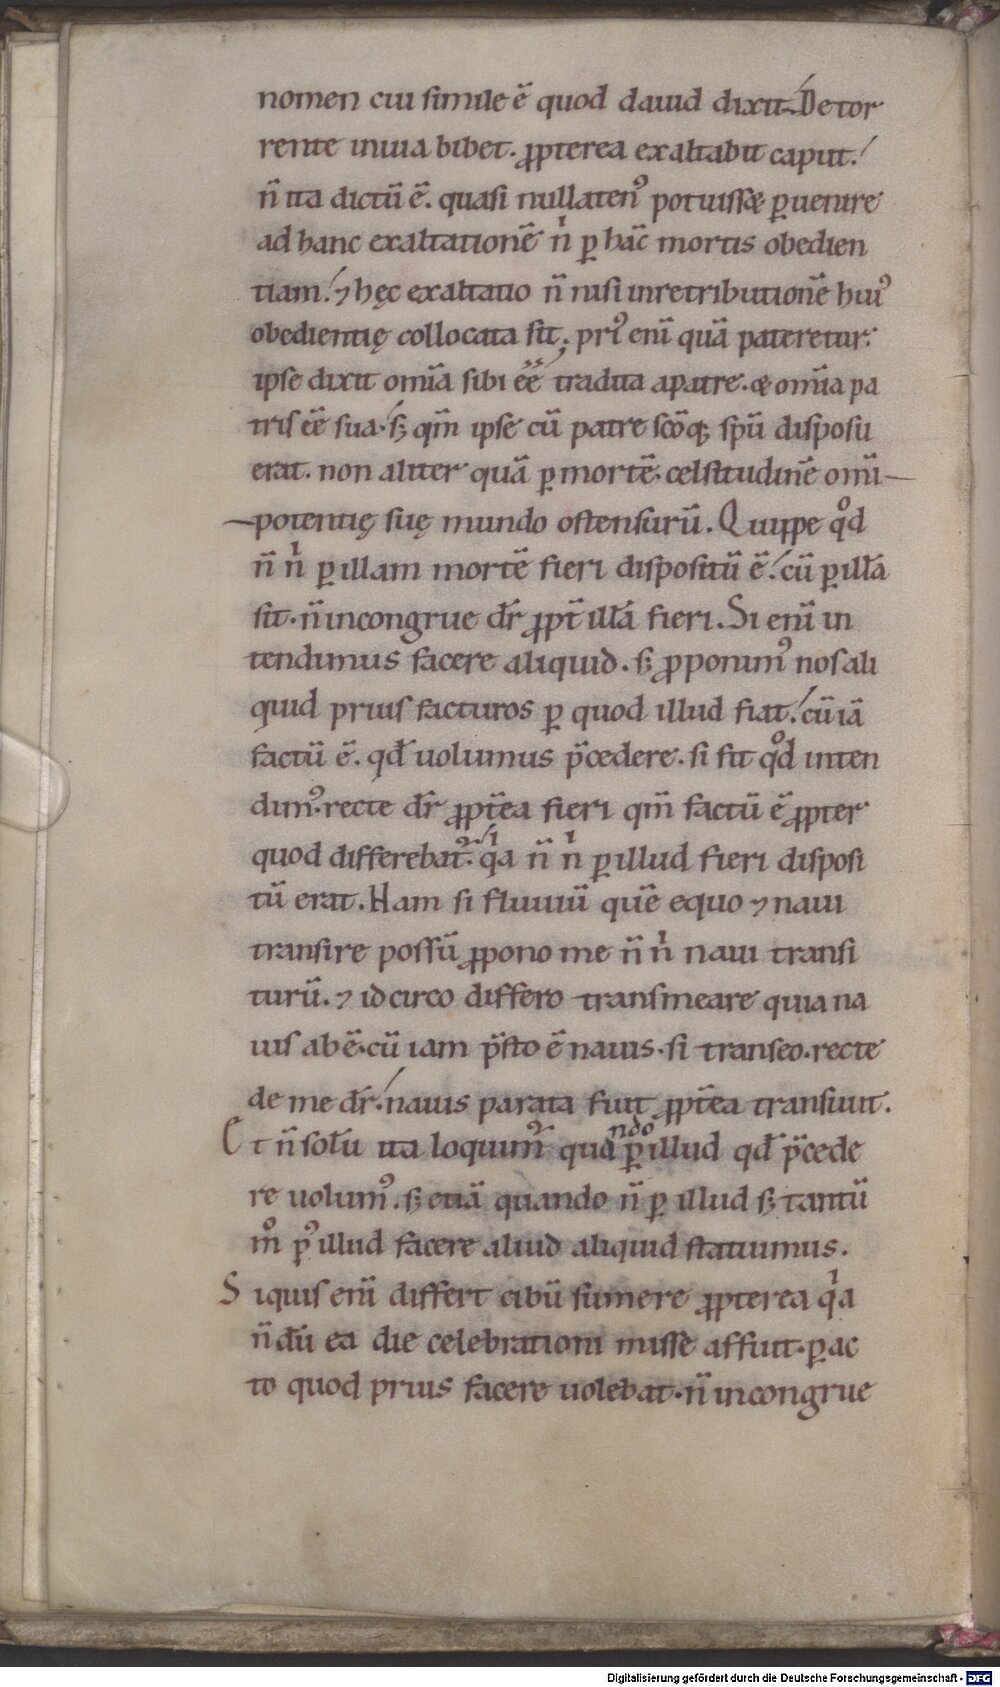 nomen cui simile ē quod dauid dixit. De tor
rente in uia bibet. ꝓpterea exaltabit caput.
n̄ ita dictū ē. quasi nullatenꝰ potuissæ ꝑuenire
ad hanc exaltationē nͥ ꝑ hāc mortis obedien
tiam. ⁊ hęc exaltatio n̄ nisi in retributionē huiꝰ
obedientię collocata sit; priꝰ eni̅ quā pateretur.
ipse dixit om̅ia sibi ee̅ tradita a patre. æ om̅ia pa
tris ee̅ sua. sꝫ qm̅ ipse cū patre sc̅oqꝫ sp̅u disposu
erat. non aliter quā ꝑ mortē. celsitudinē omni̅
potentię suę mundo ostensurū. Quippe qͦd
n̄ nͥ ꝑ illam mortē fieri dispositū ē. cū ꝑ illā
sit. n̄ incongrue dr̅ ꝓpt̅ illā fieri. Si eni̅ in
tendimus facere aliquid. sꝫ ꝓponimꝰ nos ali
quid prius facturos ꝑ quod illud fiat. cū iā
factū ē. qd̅ uolumus p̅cedere. si fit qͦd inten
dimꝰ. recte dr̅ ꝓpt̅ea fieri qm̅ factū ē ꝓpter
quod differebat᷑. qͥa n̄ nͥ ꝑ illud fieri disposi
tū erat. Nam si fluuiū quē equo ⁊ naui
transire possū ꝓpono me n̄ nͥ naui transi
turū. ⁊ idcirco differo transmeare quia na
uis ab ē. cū iam p̅sto ē nauis. si transeo. recte
de me dr̅. nauis parata fuit ꝓpt̅ea transiuit.
Et n̄ solū ita loquim᷑ quando ꝑ illud qd̅ p̅cede
re uolumꝰ. sꝫ etiā quando n̄ ꝑ illud sꝫ tantū
mͦ pꝰ illud facere aliud aliquid statuimus.
Si quis eni̅ differt cibū sumere ꝓpterea qͥa
n̄dū ea die celebrationi misse affuit. ꝑac
to quod prius facere uolebat. n̄ incongrue
Digitalisierung gefördert durch die Deutsche Forschungsgemeinschaft - DFG